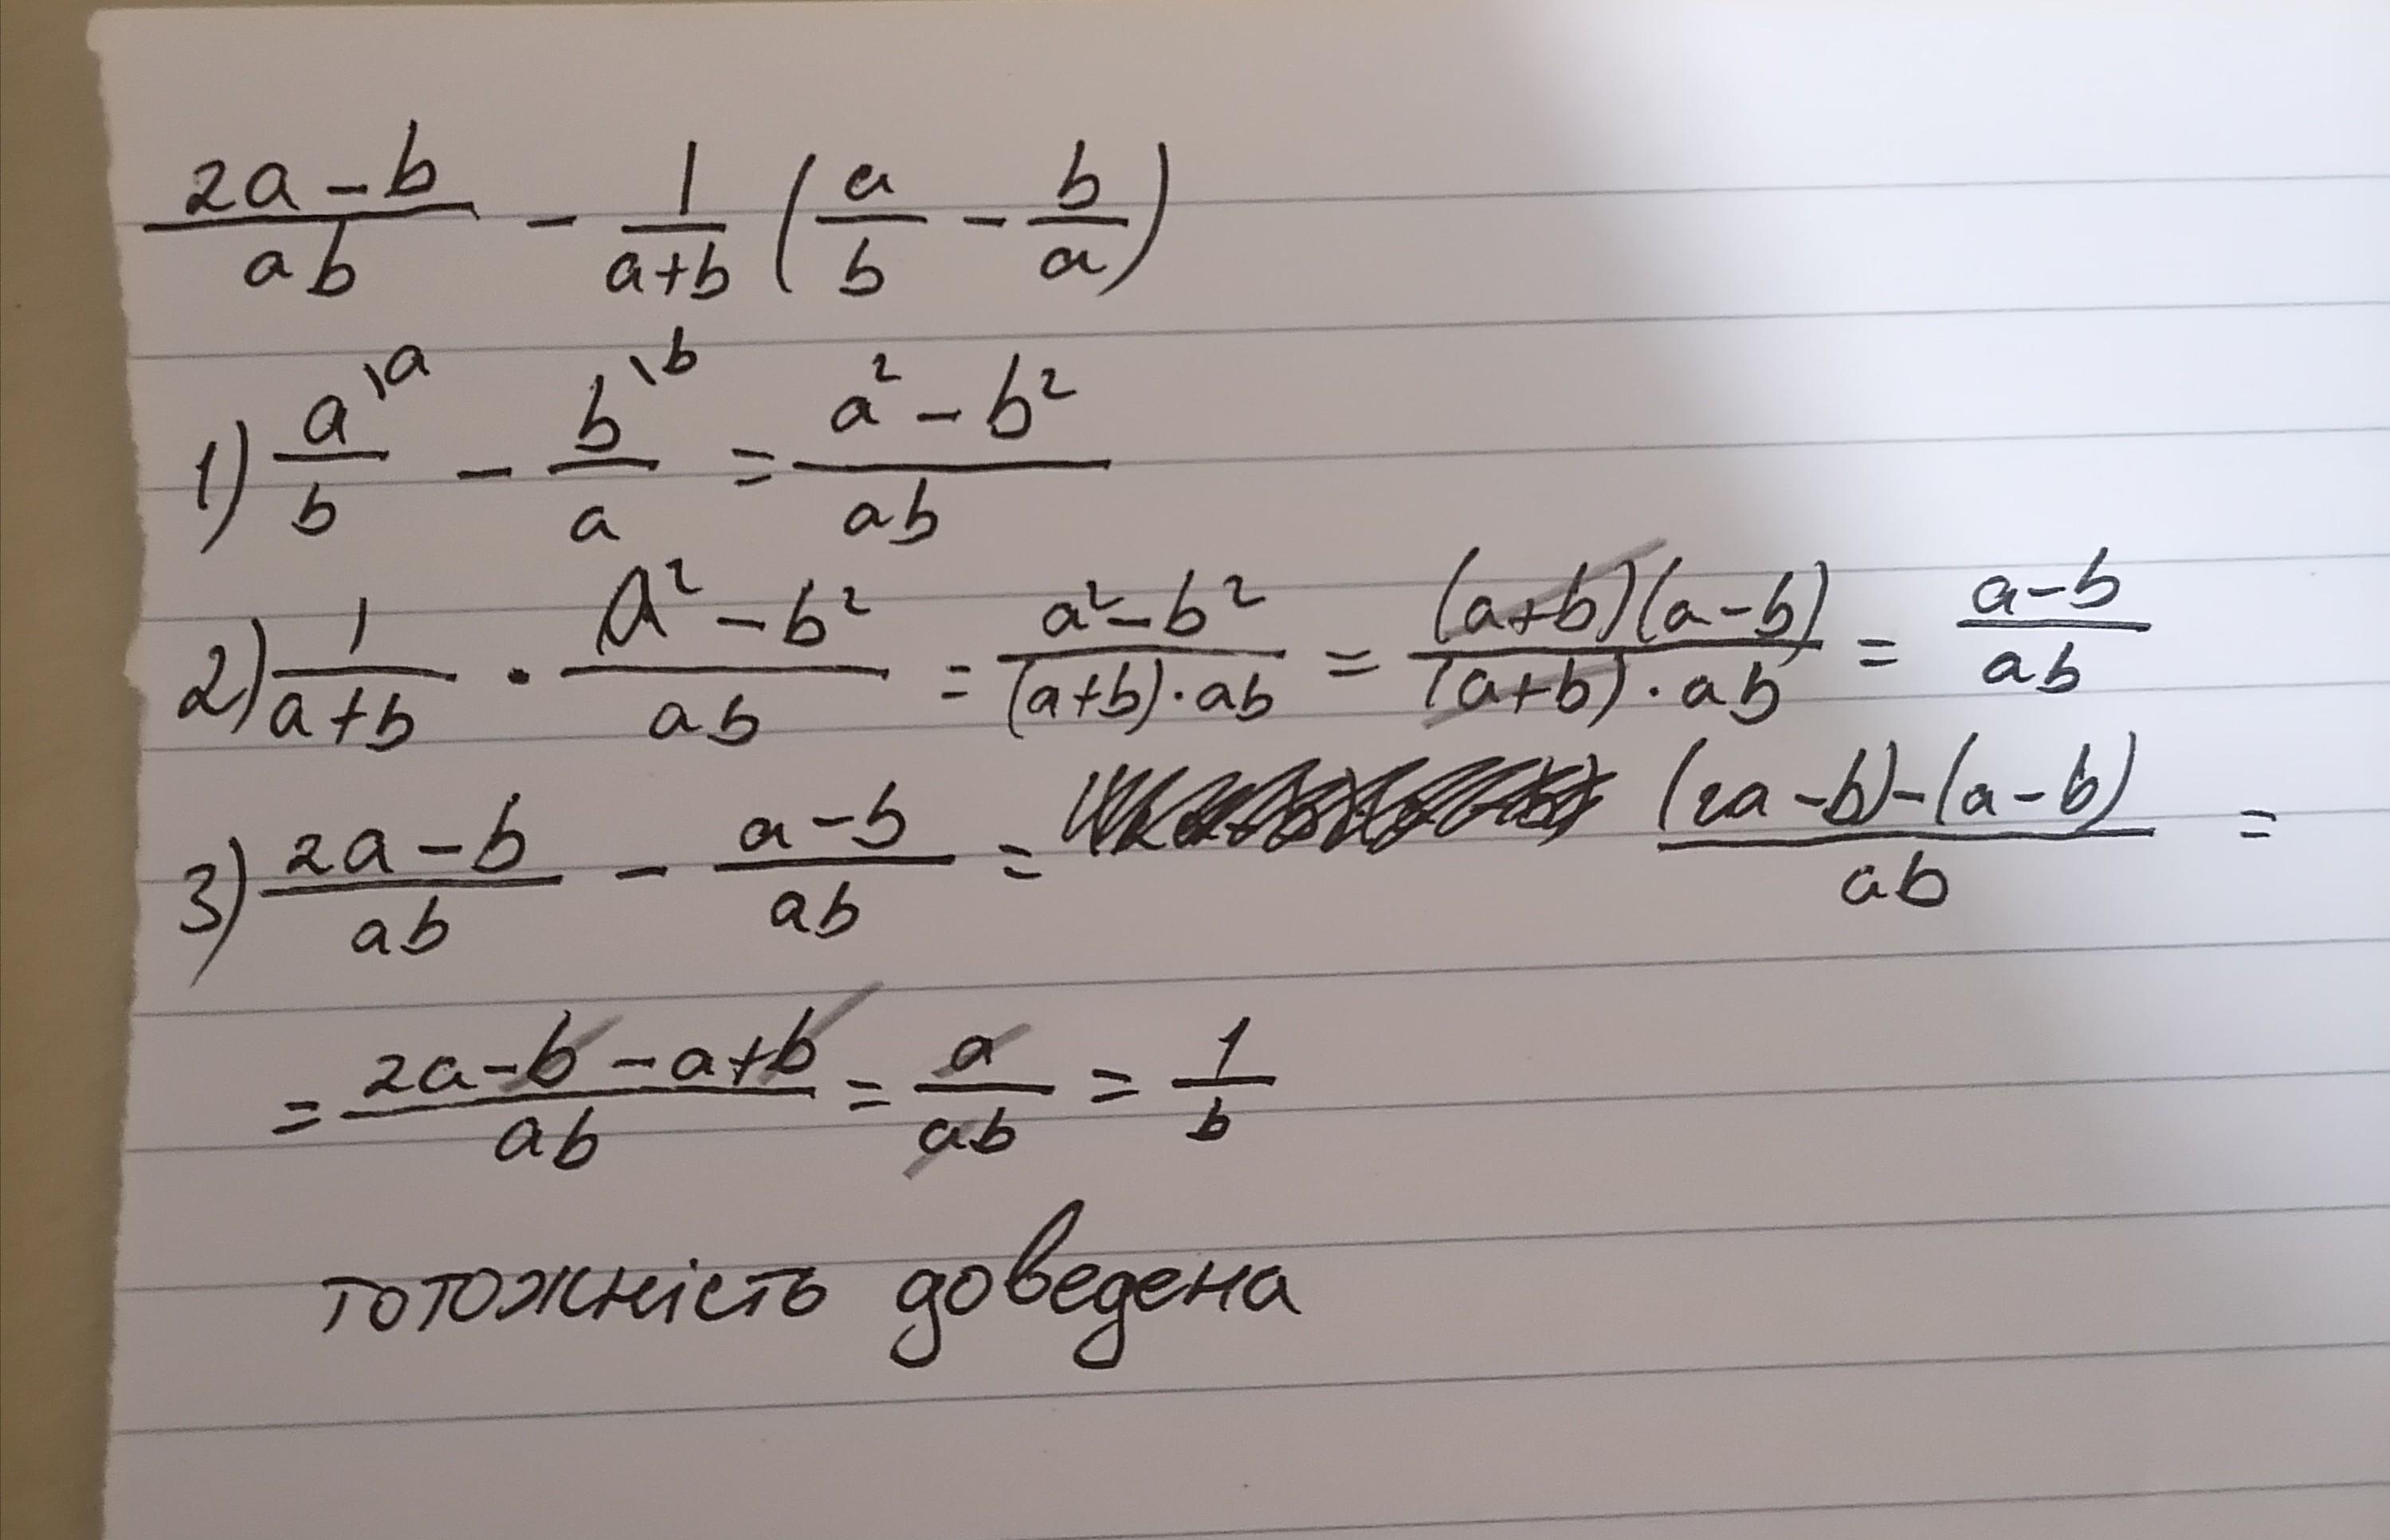 (2a-b)/(ab) - 1/(a+b) (a/b - b/a)
1) a/b \a - b/a \b = (a² - b²)/(ab)
2) 1/(a+b) · (a² - b²)/(ab) = (a² - b²)/((a+b)·ab) = ((a+b)(a-b))/((a+b)·ab) = (a-b)/(ab)
3) (2a-b)/(ab) - (a-b)/(ab) = ((2a-b)-(a-b))/(ab) =
= (2a-b-a+b)/(ab) = a/(ab) = 1/b
тотожність доведена